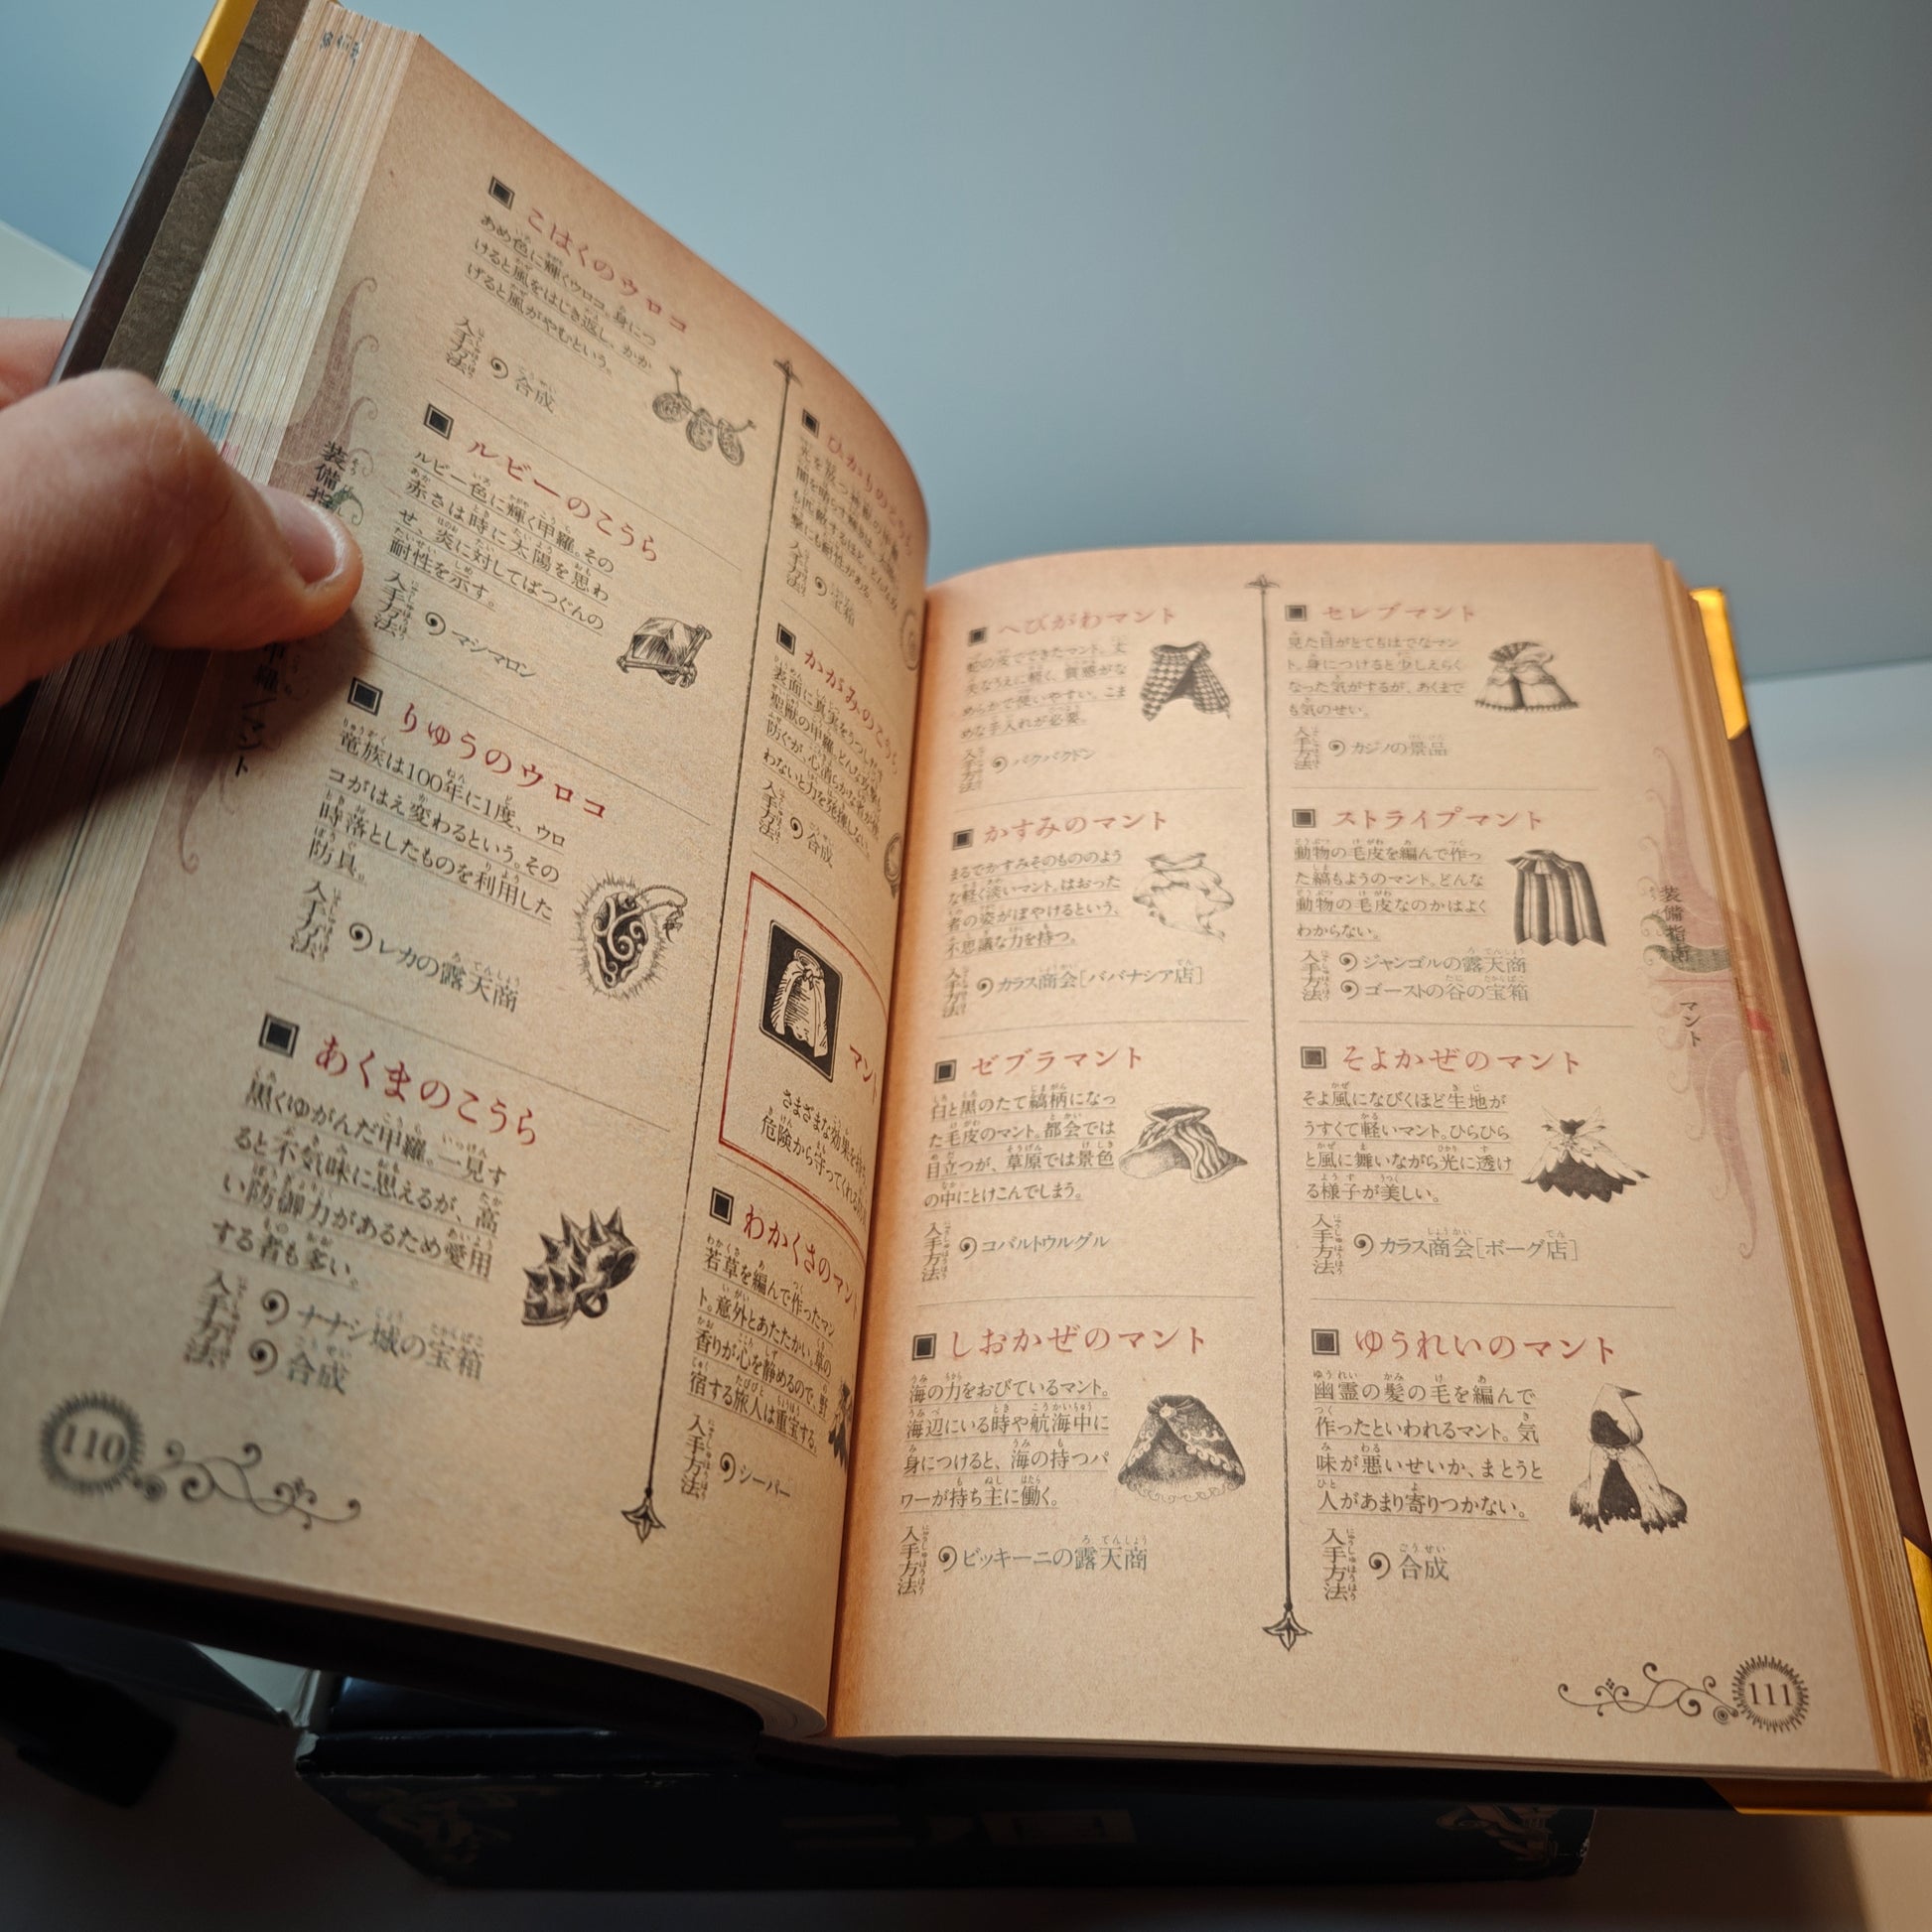 こはくのウロコ
あめ色に輝くウロコ。身につ
けると風をはじき返し、かか
げると風がやむという。
入手方法
合成
ルビーのこうら
ルビー色に輝く甲羅。その
赤さは時に太陽を思わ
せ、炎に対してばつぐんの
耐性を示す。
入手方法
マシマロン
りゅうのウロコ
竜族は100年に1度、ウロ
コがはえ変わるという。その
時落としたものを利用した
防具。
入手方法
レカの露天商
あくまのこうら
黒くゆがんだ甲羅。一見す
ると不気味に思えるが、高
い防御力があるため愛用
する者も多い。
入手方法
ナナシ城の宝箱
合成
110
ひかりのこうら
入手方法
宝箱
かがみのこうら
表面に真実をうつし出す
聖獣の甲羅。どんな攻撃も
防ぐが、心清らかな者が使
わないと力を発揮しない。
入手方法
合成
マント
さまざまな効果を持ち
危険から守ってくれる
わかくさのマント
若草を編んで作ったマン
ト。意外とあたたかい。草の
香りが心を静めるので、野
宿する旅人は重宝する。
入手方法
シーバー
へびがわマント
蛇の皮でできたマント。丈
夫なうえに軽く、質感がな
めらかで使いやすい。こま
めな手入れが必要。
入手方法
バクバクドン
かすみのマント
まるでかすみそのもののよう
な軽く淡いマント。はおった
者の姿がぼやけるという、
不思議な力を持つ。
入手方法
カラス商会[ババナシア店]
ゼブラマント
白と黒のたて縞柄になっ
た毛皮のマント。都会では
目立つが、草原では景色
の中にとけこんでしまう。
入手方法
コバルトウルグル
しおかぜのマント
海の力をおびているマント。
海辺にいる時や航海中に
身につけると、海の持つパ
ワーが持ち主に働く。
入手方法
ビッキーニの露天商
セレブマント
見た目がとてもはでなマン
ト。身につけると少しえらく
なった気がするが、あくまで
も気のせい。
入手方法
カジノの景品
ストライプマント
動物の毛皮を編んで作っ
た縞もようのマント。どんな
動物の毛皮なのかはよく
わからない。
入手方法
ジャンゴルの露天商
ゴーストの谷の宝箱
そよかぜのマント
そよ風になびくほど生地が
うすくて軽いマント。ひらひら
と風に舞いながら光に透け
る様子が美しい。
入手方法
カラス商会[ボーグ店]
ゆうれいのマント
幽霊の髪の毛を編んで
作ったといわれるマント。気
味が悪いせいか、まとうと
人があまり寄りつかない。
入手方法
合成
装備指南
マント
111